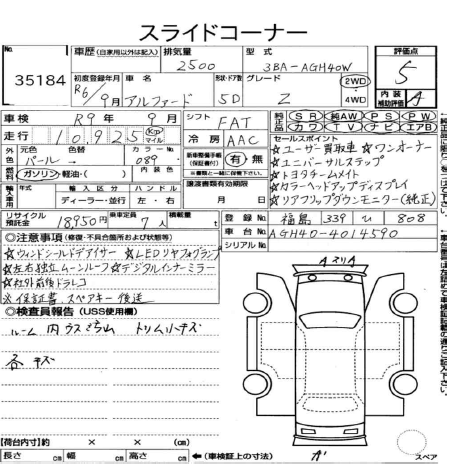 スライドコーナー
No. 35184
車歴(自家用以外は記入) 排気量 2500 型式 3BA-AGH40W
評価点 5
初度登録年月 R6年9月 車名 アルファード 形状・ドア数 5D グレード Z 2WD 4WD
内装補助評価 A
車検 R9年9月
シフト FAT
純正品 SR 純AW PS PW
カワ TV ナビ エアB
走行 10,925 Km マイル
冷房 AAC
セールスポイント
☆ユーザー買取車 ☆ワンオーナー
外色 元色 パール 色替 → カラーNo. 089
燃料 ガソリン・軽油・( ) 内装色
新車整備手帳(保証書付) 有 無
☆ユニバーサルステップ
☆トヨタチームメイト
☆カラーヘッドアップディスプレイ
☆リアフリップダウンモニター(純正)
輸入車用 年式 輸入区分 ディーラー・並行 ハンドル 左・右
譲渡書類有効期限 月 日
リサイクル預託金 18950円 乗車定員 7人 積載量 t
登録No. 福島 339 ひ 808
車台No. AGH40-4014590
シリアルNo.
◎注意事項(修復・不具合箇所および状態等)
☆ウィンドシールドデアイサー ☆LEDリヤフォグランプ
☆左右独立ムーンルーフ ☆デジタルインナーミラー
☆社外前後ドラレコ
※保証書 スペアキー 後送
◎検査員報告(USS使用欄)
ルーム内ウスごみ トリム小キズ
各キズ
【荷台内寸】約 × × (cm)
長さ cm 幅 cm 高さ cm ←(車検証上の寸法)
スペア